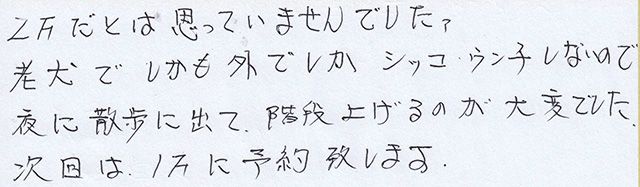 2万だとは思っていませんでした?
老犬でしかも外でしか シッコ・ウンチしないので
夜に散歩に出て、階段上げるのが大変でした。
次回は、1万に予約致します。